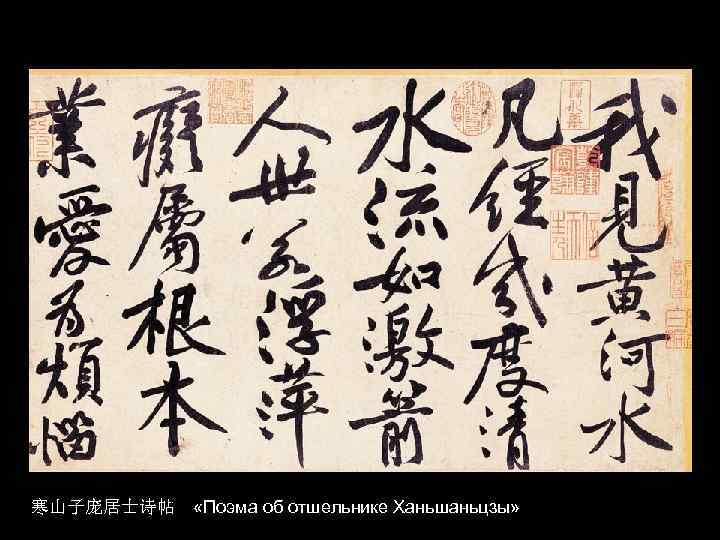 我見黃河水
凡經幾度清
水流如激箭
人世若浮萍
癡屬根本
業愛為煩惱
寒山子庞居士诗帖 «Поэма об отшельнике Ханьшаньцзы»